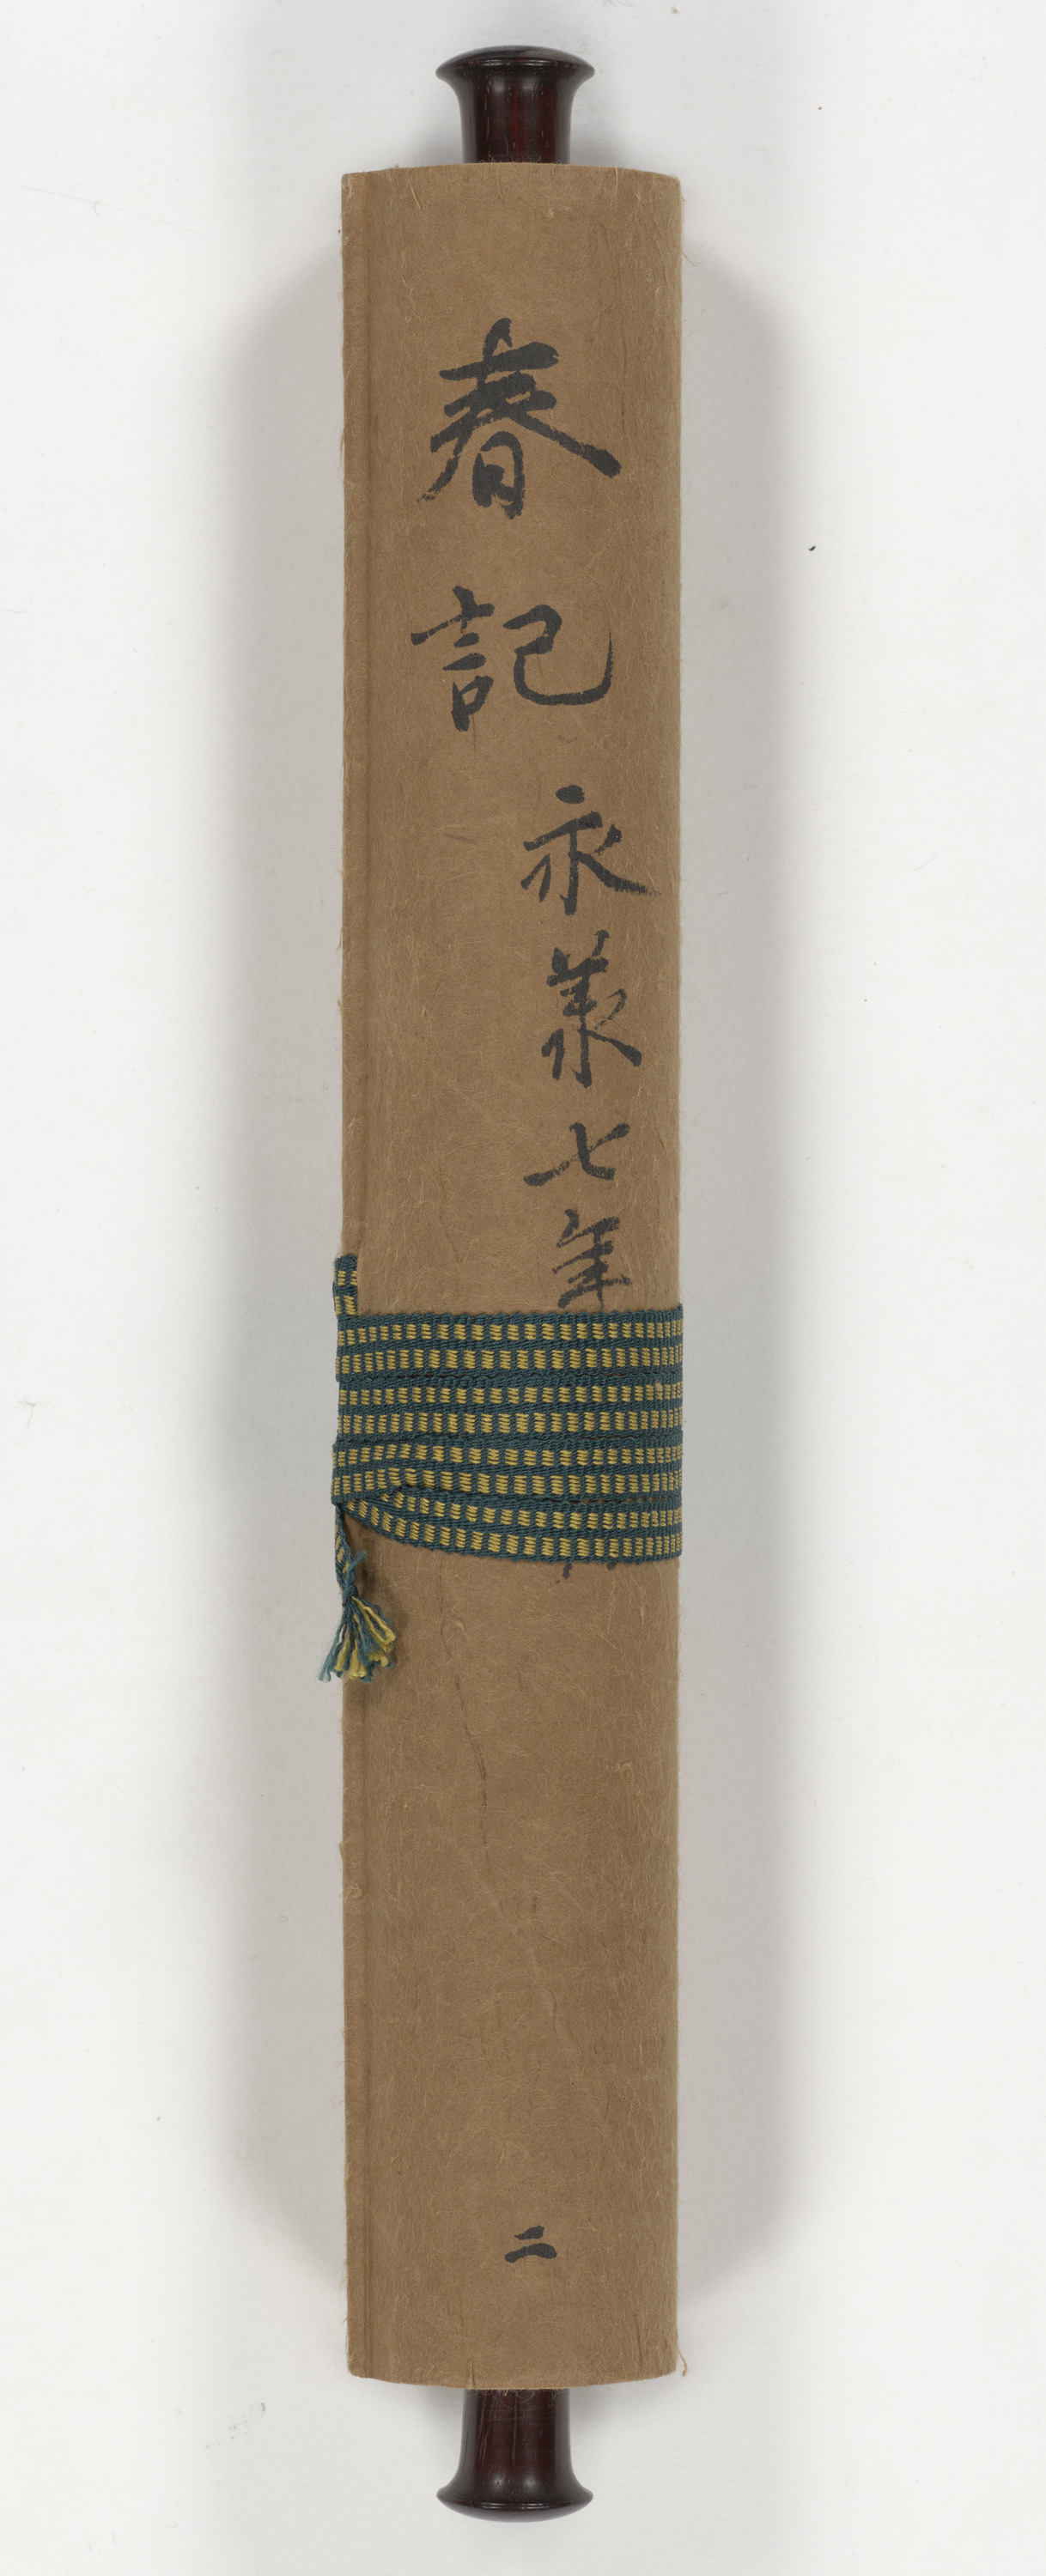 春記
永承七年
二